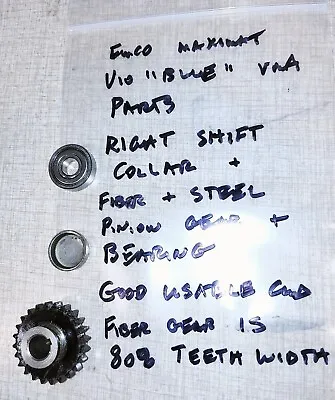 EMCO MAXIMAT
V10 "BLUE" VMA
PARTS
RIGHT SHIFT
COLLAR +
FIBER + STEEL
PINION GEAR +
BEARING
GOOD USABLE CND
FIBER GEAR IS
80% TEETH WIDTH